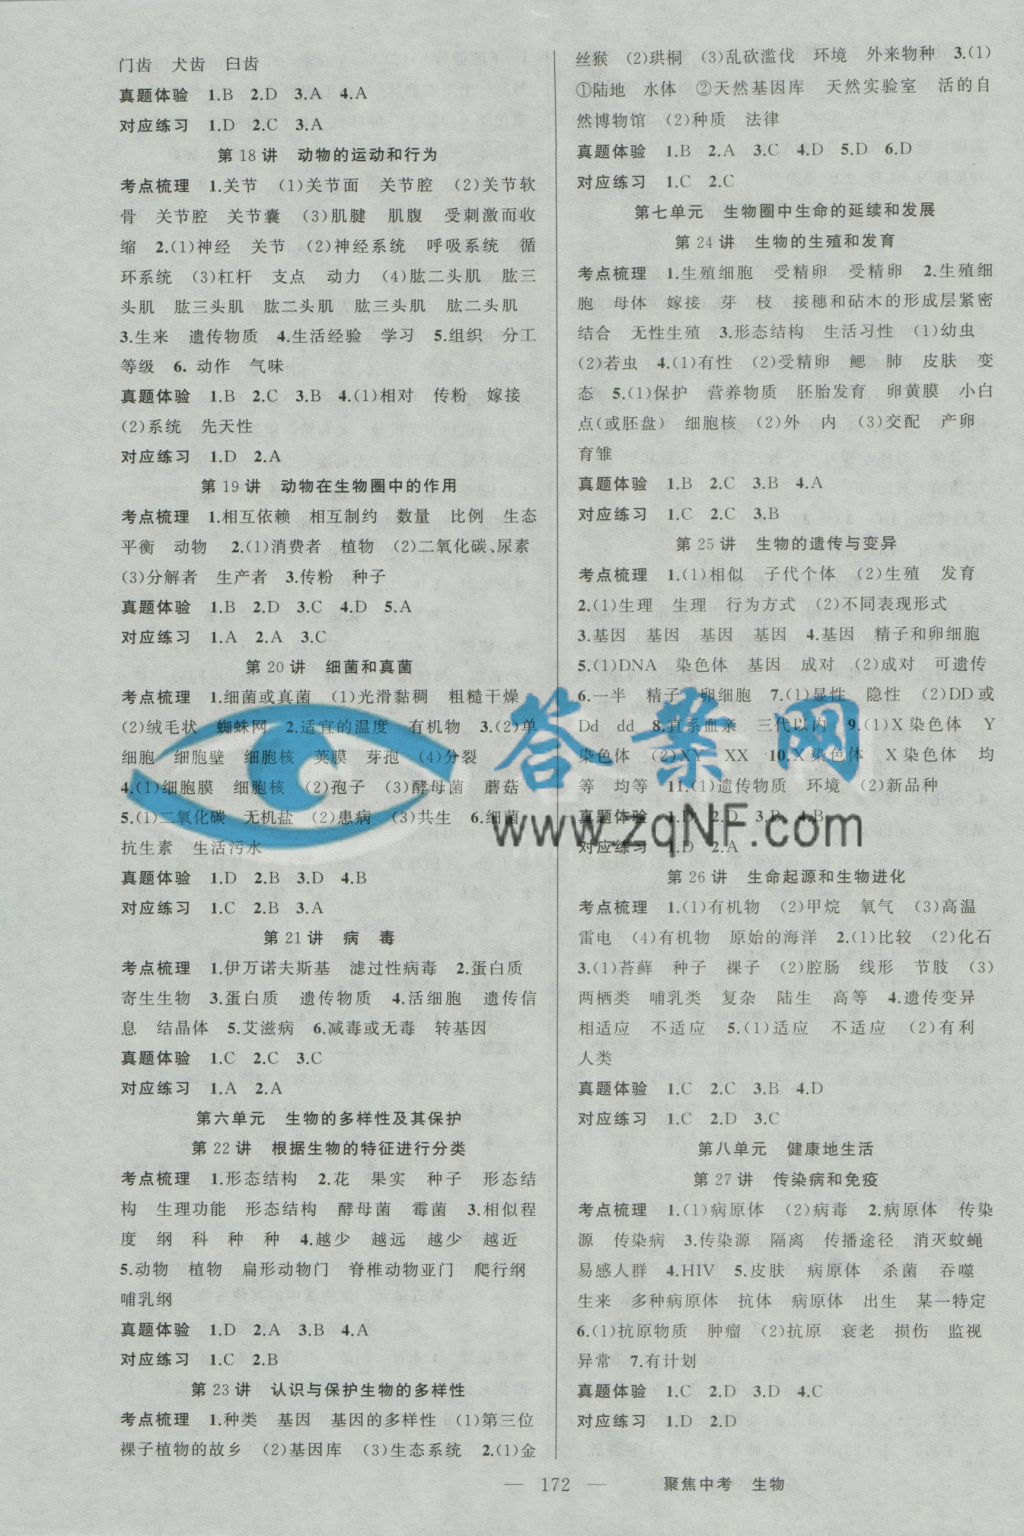 门齿 犬齿 臼齿
真题体验 1.B 2.D 3.A 4.A
对应练习 1.D 2.C 3.A
第 18 讲 动物的运动和行为
考点梳理 1.关节 (1)关节面 关节腔 (2)关节软
骨 关节腔 关节囊 (3)肌腱 肌腹 受刺激而收
缩 2.(1)神经 关节 (2)神经系统 呼吸系统 循
环系统 (3)杠杆 支点 动力 (4)肱二头肌 肱三
头肌 肱三头肌 肱二头肌 肱三头肌 肱二头肌
3.生来 遗传物质 4.生活经验 学习 5.组织 分工
等级 6. 动作 气味
真题体验 1.B 2.C 3.B 4.(1)相对 传粉 嫁接
(2)系统 先天性
对应练习 1.D 2.A
第 19 讲 动物在生物圈中的作用
考点梳理 1.相互依赖 相互制约 数量 比例 生态
平衡 动物 2.(1)消费者 植物 (2)二氧化碳、尿素
(3)分解者 生产者 3.传粉 种子
真题体验 1.B 2.D 3.C 4.D 5.A
对应练习 1.A 2.A 3.C
第 20 讲 细菌和真菌
考点梳理 1.细菌或真菌 (1)光滑黏稠 粗糙干燥
(2)绒毛状 蜘蛛网 2.适宜的温度 有机物 3.(2)单
细胞 细胞壁 细胞核 荚膜 芽孢 (4)分裂
4.(1)细胞膜 细胞核 (2)孢子 (3)酵母菌 蘑菇
5.(1)二氧化碳 无机盐 (2)患病 (3)共生 6.细菌
抗生素 生活污水
真题体验 1.D 2.B 3.D 4.B
对应练习 1.C 2.B 3.A
第 21 讲 病 毒
考点梳理 1.伊万诺夫斯基 滤过性病毒 2.蛋白质
寄生生物 3.蛋白质 遗传物质 4.活细胞 遗传信
息 结晶体 5.艾滋病 6.减毒或无毒 转基因
真题体验 1.C 2.C 3.C
对应练习 1.A 2.A
第六单元 生物的多样性及其保护
第 22 讲 根据生物的特征进行分类
考点梳理 1.形态结构 2.花 果实 种子 形态结
构 生理功能 形态结构 酵母菌 霉菌 3.相似程
度 纲 科 种 种 4.越少 越远 越少 越近
5.动物 植物 扁形动物门 脊椎动物亚门 爬行纲
哺乳纲
真题体验 1.D 2.A 3.B 4.A
对应练习 1.C 2.B
第 23 讲 认识与保护生物的多样性
考点梳理 1.种类 基因 基因的多样性 (1)第三位
裸子植物的故乡 (2)基因库 (3)生态系统 2.(1)金
丝猴 (2)珙桐 (3)乱砍滥伐 环境 外来物种 3.(1)
①陆地 水体 ②天然基因库 天然实验室 活的自
然博物馆 (2)种质 法律
真题体验 1.B 2.A 3.C 4.D 5.D 6.D
对应练习 1.C 2.C
第七单元 生物圈中生命的延续和发展
第 24 讲 生物的生殖和发育
考点梳理 1.生殖细胞 受精卵 受精卵 2.生殖细
胞 母体 嫁接 芽 枝 接穗和砧木的形成层紧密
结合 无性生殖 3.形态结构 生活习性 (1)幼虫
(2)若虫 4.(1)有性 (2)受精卵 鳃 肺 皮肤 变
态 5.(1)保护 营养物质 胚胎发育 卵黄膜 小白
点(或胚盘) 细胞核 (2)外 内 (3)交配 产卵
育雏
真题体验 1.B 2.C 3.B 4.A
对应练习 1.C 2.C 3.B
第 25 讲 生物的遗传与变异
考点梳理 1.(1)相似 子代个体 (2)生殖 发育
2.(1)生理 生理 行为方式 (2)不同表现形式
3.基因 基因 基因 基因 4.基因 精子和卵细胞
5.(1)DNA 染色体 基因 成对 (2)成对 可遗传
6.一半 精子 卵细胞 7.(1)显性 隐性 (2)DD或
Dd dd 8.直系血亲 三代以内 9.(1)X染色体 Y
染色体 (2)XY XX 10.X染色体 X染色体 均
等 均等 11.(1)遗传物质 环境 (2)新品种
真题体验 1.D 2.B 3.D 4.B
对应练习 1.D 2.A
第 26 讲 生命起源和生物进化
考点梳理 1.(1)有机物 (2)甲烷 氧气 (3)高温
雷电 (4)有机物 原始的海洋 2.(1)比较 (2)化石
3.(1)苔藓 种子 裸子 (2)腔肠 线形 节肢 (3)
两栖类 哺乳类 复杂 陆生 高等 4.遗传变异
相适应 不适应 5.(1)适应 不适应 (2)有利
人类
真题体验 1.C 2.C 3.B 4.D
对应练习 1.C 2.D 3.C
第八单元 健康地生活
第 27 讲 传染病和免疫
考点梳理 1.(1)病原体 (2)病毒 2.病原体 传染
源 传染病 3.传染源 隔离 传播途径 消灭蚊蝇
易感人群 4.HIV 5.皮肤 病原体 杀菌 吞噬
生来 多种病原体 抗体 病原体 出生 某一特定
6.(1)抗原物质 肿瘤 (2)抗原 衰老 损伤 监视
异常 7.有计划
真题体验 1.C 2.D 3.D 4.C
对应练习 1.D 2.D
答案网
www.zqNF.com
— 172 — 聚焦中考 生物